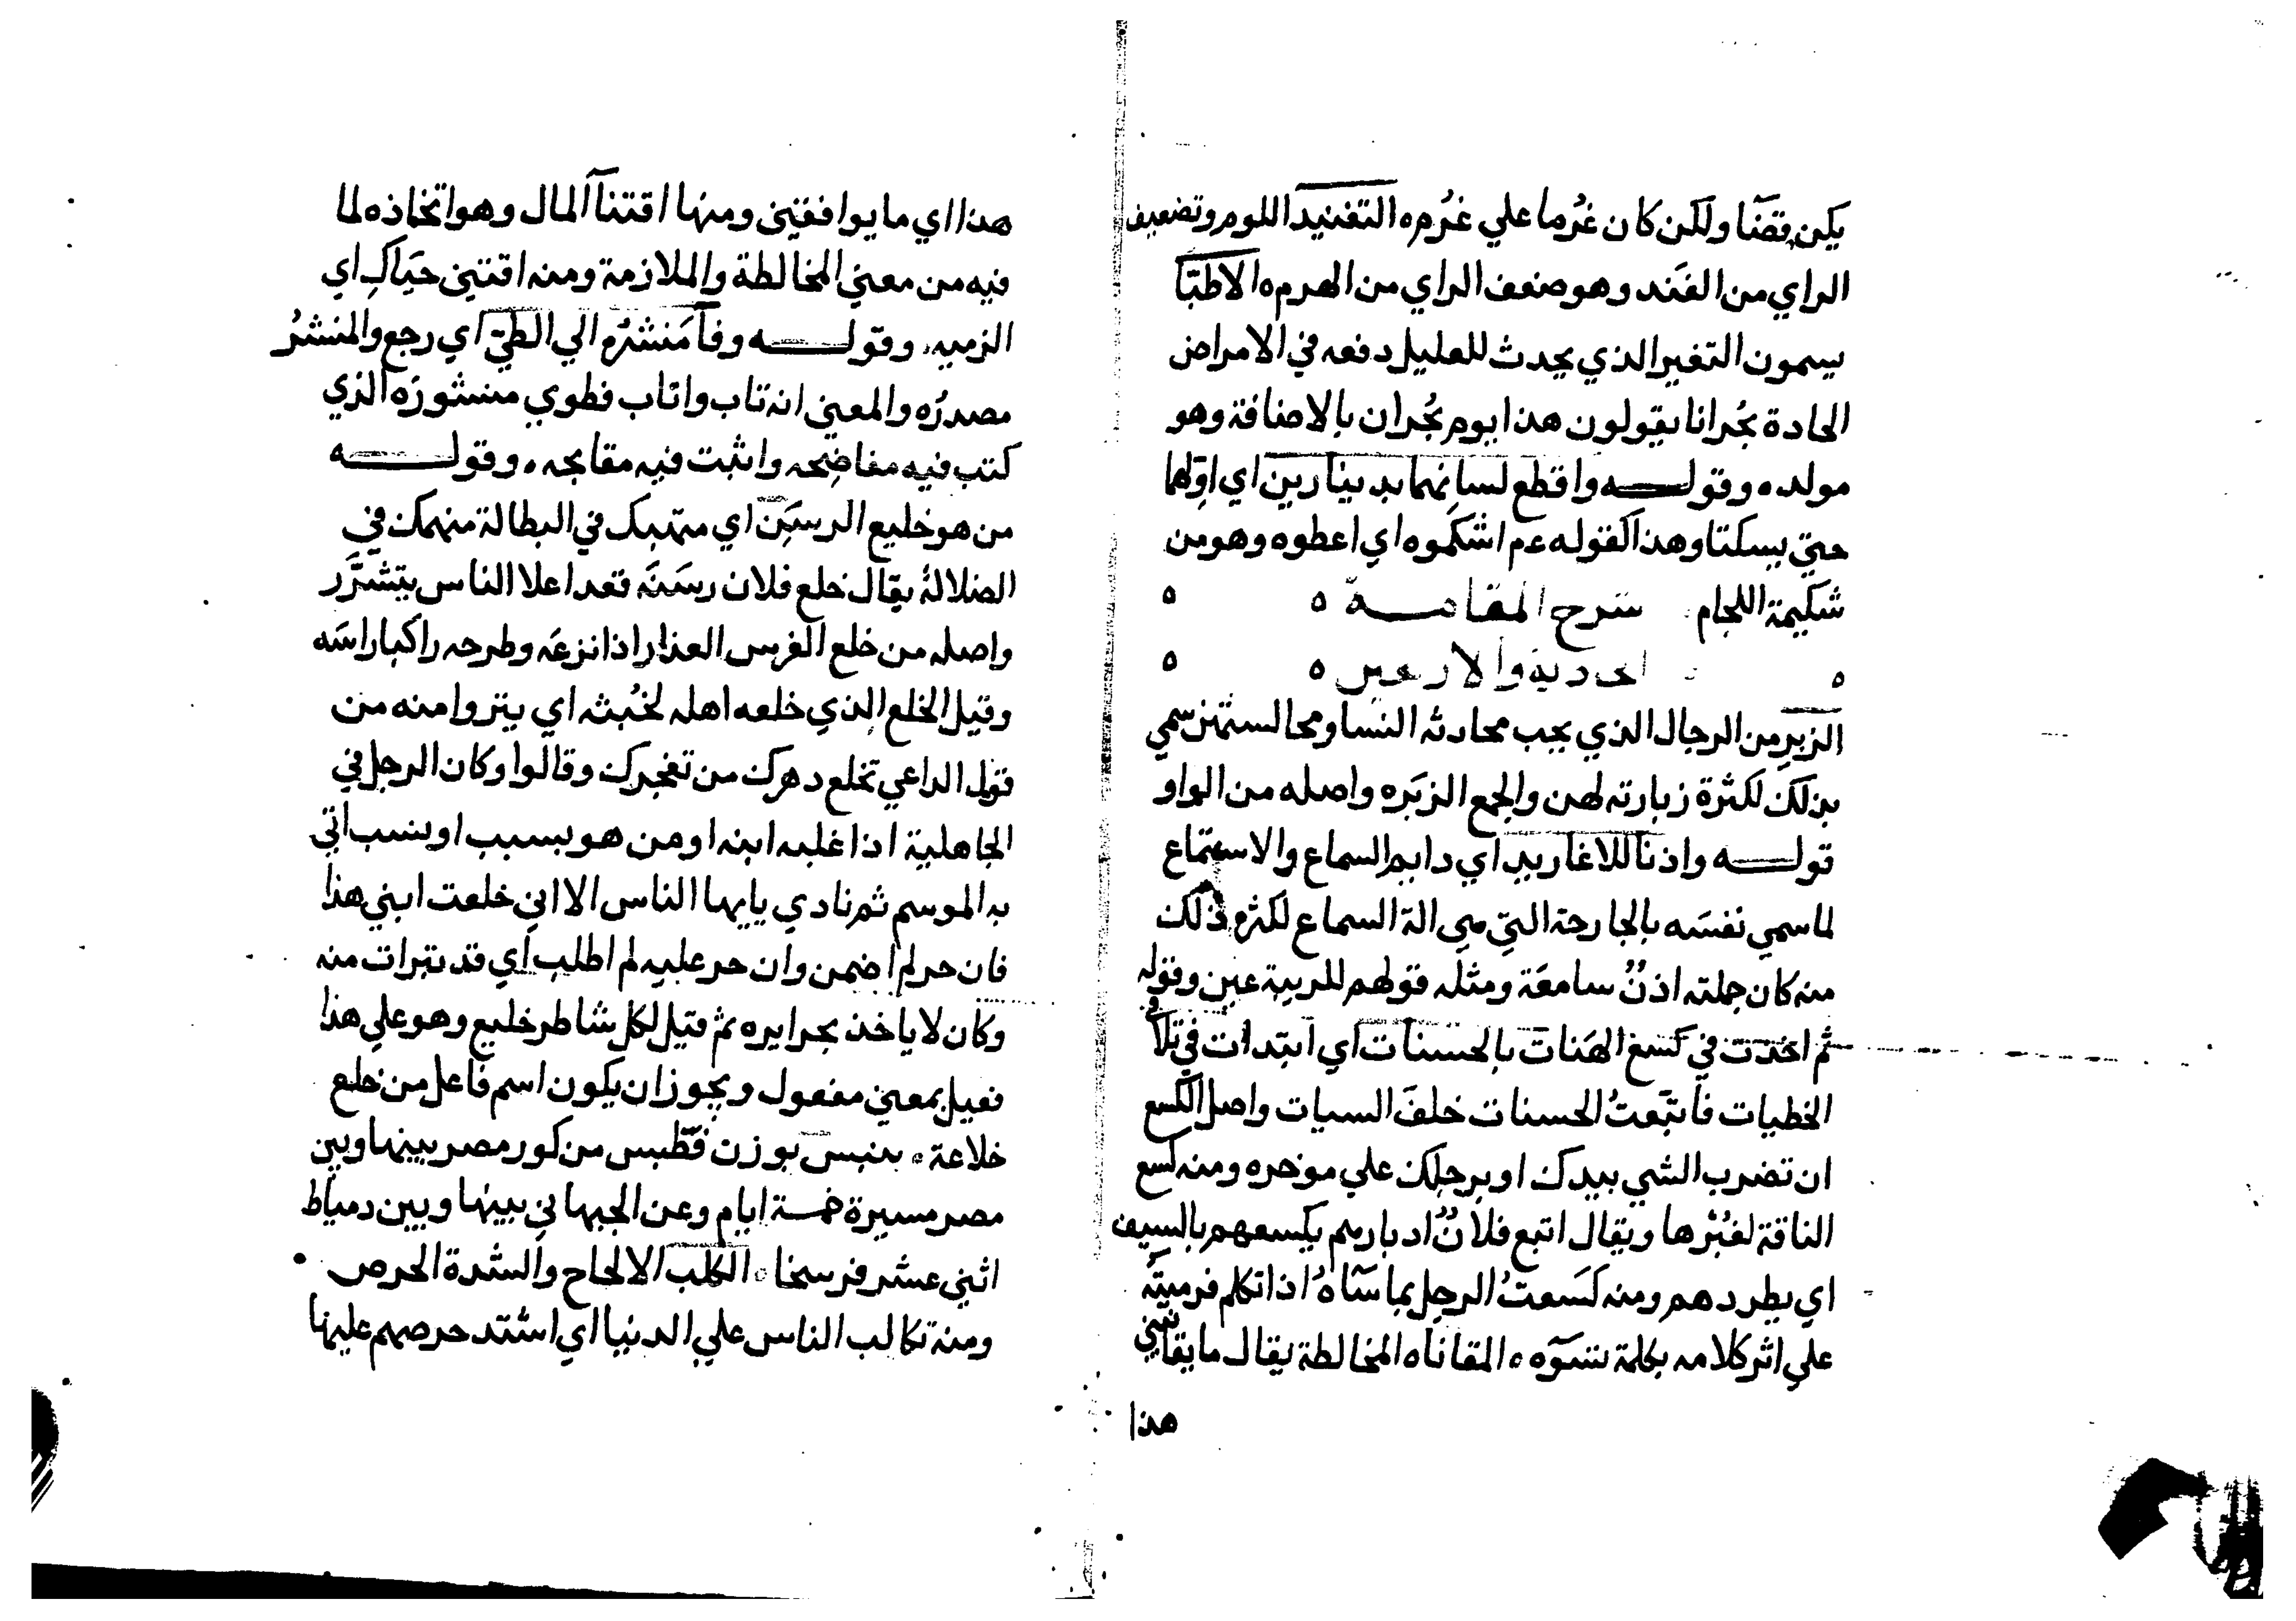 يكن قضَا ولكن كان غُرما علي غُرم ه التفنيد اللوم وتضعيف
الراي من الفَند وهو ضعف الراي من الهرم ه الاطبّا
يسمون التغير الذي يحدث للعليل دفعه في الامراض
الحادة بُحرانا يقولون هذا يوم بُحران بالاضافة وهو
مولد ه وقولـــه واقطع لسانهما بدينارين اي اولهما
حتي يسكتا وهذا كقوله عم اشكموه اي اعطوه وهو من
شكيمة اللجام شرح المقامـــة ه ه
ه الحادية والاربعين ه ه
الزير من الرجال الذي يحب محادثة النسا ومجالستهن سمي
بذلك لكثرة زيارته لهن والجمع الزيَره واصله من الواو
قولـــه واذنا للاغاريد اي دايم السماع والاستماع
لما سمي نفسَه بالجارحة التي هي الة السماع لكثرة ذلك
منه كان جملته اذنٌ سامعَة ومثله قولهم للربية عين وقوله
ثم اخذت في كسع الهَنات بالحسنات اي ابتدات في تلاُ
الخطيات فاتبَعتُ الحسنات خلفَ السيات واصل الكسع
ان تضرب الشي بيدك او برجلك علي موخره ومنه كسع
الناقة لغُبْرها ويقال اتبع فلانٌ ادبارهم يكسعهم بالسيف
اي يطردهم ومنه كسَعتُ الرجل بما سآهُ اذا تكلم فرميتَه
علي اثر كلامه بكلمة تسَوه ه المقاناه المخالطة يقال ما يقانيني
هذا
هذا اي ما يوافقني ومنها اقتنآ المال وهو اتخاذه لما
فيه من معني المخالطة والملازمة ومنه اقتني حيَاكِ اي
الزميه وقولـــه وفآ مَنشَره الي الطيّ اي رجع والمنشَرُ
مصدرُه والمعني انه تاب واناب فطوي منشورَه الذي
كتب فيه مفاضحِه واثبت فيه مقابحه ه وقولـــه
من هو خليع الرسَن اي متهتك في البطالة منهمك في
الضلالة يقال خلع فلان رسَنَه فعدا علا الناس يتشرَّر
واصله من خلع الفرس العذار اذا نزعَه وطرحه راكبا راسَه
وقيل الخلع الذي خلعه اهله لخُبثه اي يتبروا منه من
قول الداعي نخلع دهرك من تفجيرك وقالوا وكان الرجل في
الجاهلية اذا غلبه ابنه او من هو بسبب او بنسب اتي
به الموسم ثم نادي يايها الناس الا اني خلعت ابني هذا
فان جر لم اضمن وان جر عليه لم اطلب اي قد تبرات منه
وكان لا ياخذ بجرايره ثم قيل لكل شاطر خليع وهو علي هذا
فعيل بمعني مفعول ويجوز ان يكون اسم فاعل من خلع
خلاعة ه بوزن قطبس من كور مصر بينها وبين
مصر مسيرة خمسة ايام وعن الجيهاني بينها وبين دمياط
اثني عشر فرسخا ه الكلَب الالحاح والشدة الحرص
ومنه تكالب الناس علي الدنيا اي اشتد حرصهم عليها